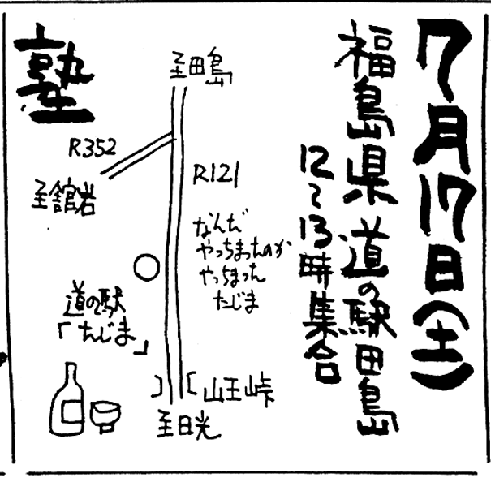 7月17日(土)
福島県 道の駅田島
12〜13時集合
塾
至田島
R352
R121
至舘岩
なんだ
やっちまったのか
やっちまった
たじま
道の駅
「たじま」
山王峠
至日光